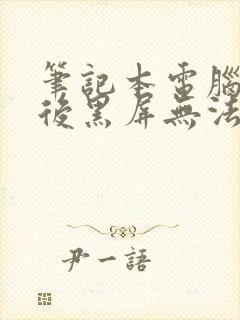 筆記本電腦
後黑屏無法
尹一語